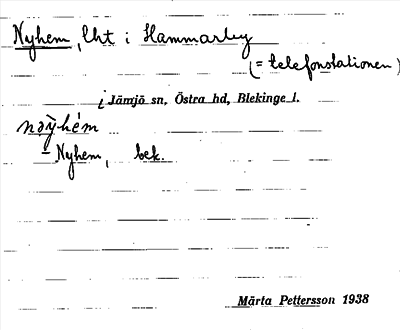 Nyhem, lht i Hammarby
(= telefonstationen)
i Jämjö sn, Östra hd, Blekinge l.
nə̀yhém
– Nyhem, bek.
Märta Pettersson 1938